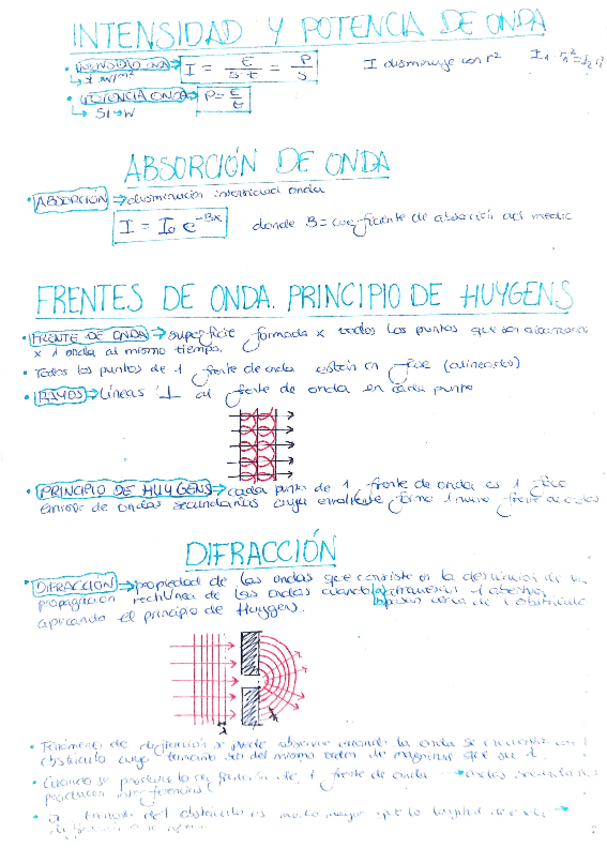 INTENSIDAD Y POTENCIA DE ONDA
• INTENSIDAD ONDA → I = E / S·t = P / S I disminuye con r² I₁ · r₁² = I₂ r₂²
↳ W/m²
• POTENCIA ONDA → P = E / t
↳ SI → W
ABSORCIÓN DE ONDA
• ABSORCIÓN → disminución intensidad onda
I = I₀ e^-Bx donde B = coeficiente de absorción del medio
FRENTES DE ONDA. PRINCIPIO DE HUYGENS
• FRENTE DE ONDA → superficie formada x todos los puntos que son
x 1 onda al mismo tiempo.
• Todos los puntos de 1 frente de onda están en fase
• RAYOS → líneas ⊥ al frente de onda en cada punto
• PRINCIPIO DE HUYGENS → cada punto de 1 frente de onda es 1 foco
emisor de ondas secundarias cuya envolvente forma 1 nuevo frente de ondas
DIFRACCIÓN
• DIFRACCIÓN → propiedad de las ondas que consiste en la
propagación rectilínea de las ondas cuando
aplicando el principio de Huygens.
λ
• Fenómeno de difracción se puede observar cuando la onda se encuentra con 1
obstáculo cuyo tamaño es del mismo orden de magnitud que su λ.
• Cuando se produce la difracción de 1 frente de onda → ondas secundarias
producen interferencias
• tamaño del obstáculo es mucho mayor que la longitud de onda →